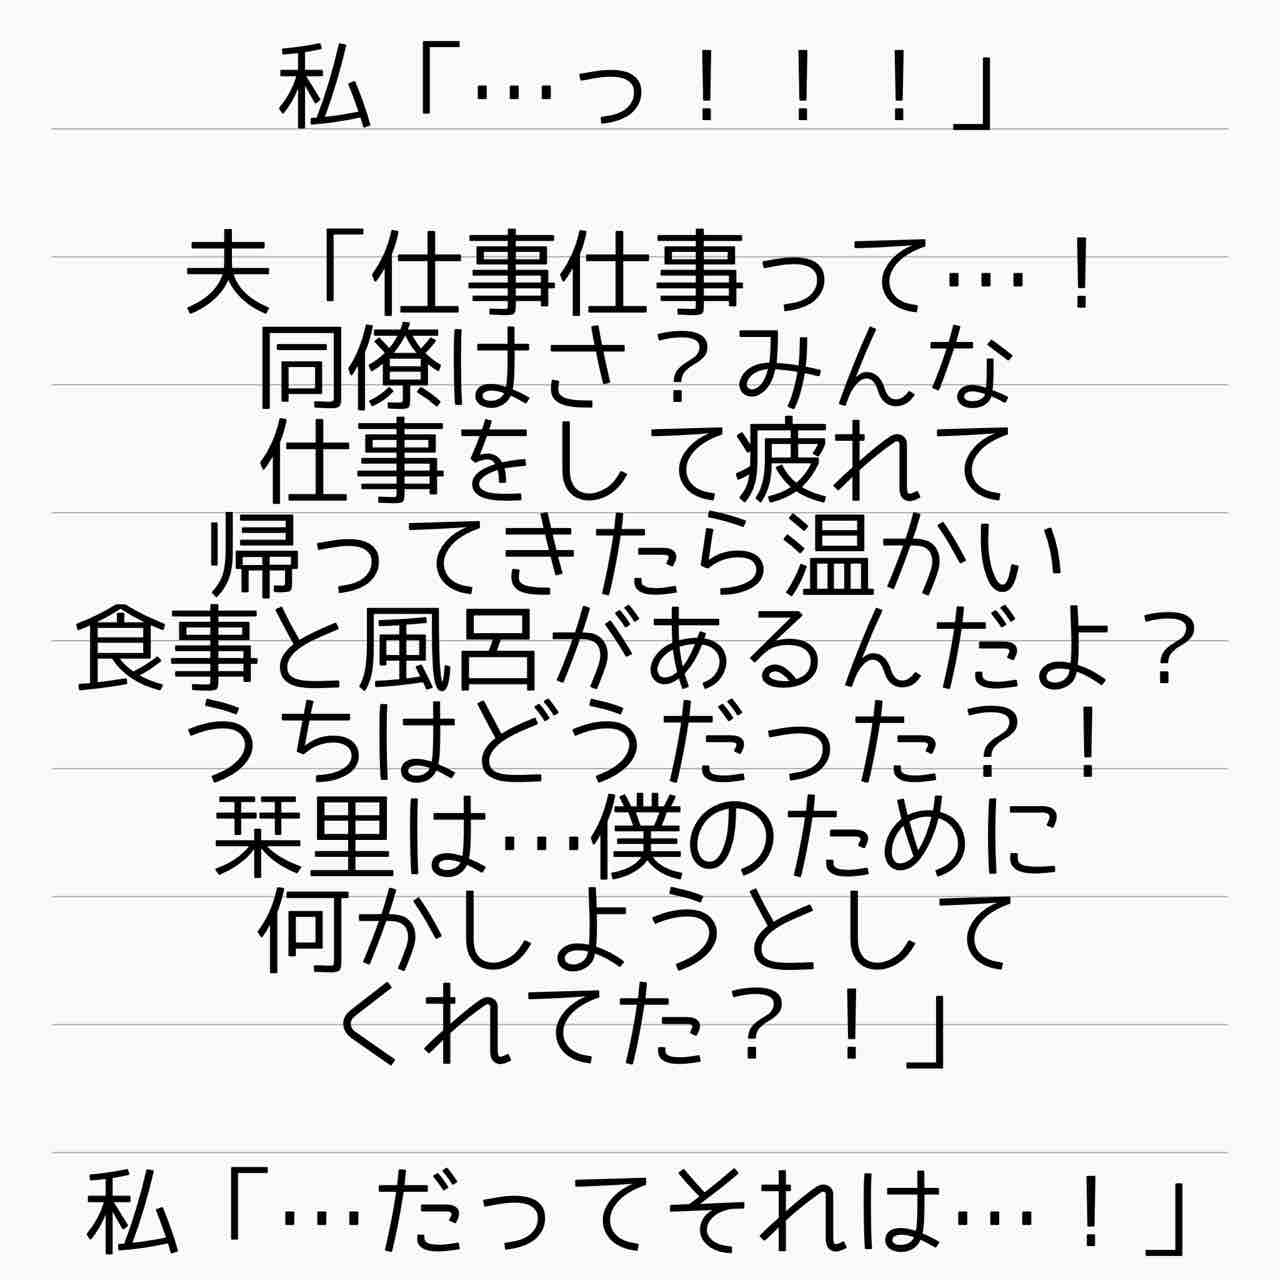 私「…っ！！！」
夫「仕事仕事って…！
同僚はさ？みんな
仕事をして疲れて
帰ってきたら温かい
食事と風呂があるんだよ？
うちはどうだった？！
栞里は…僕のために
何かしようとして
くれてた？！」
私「…だってそれは…！」